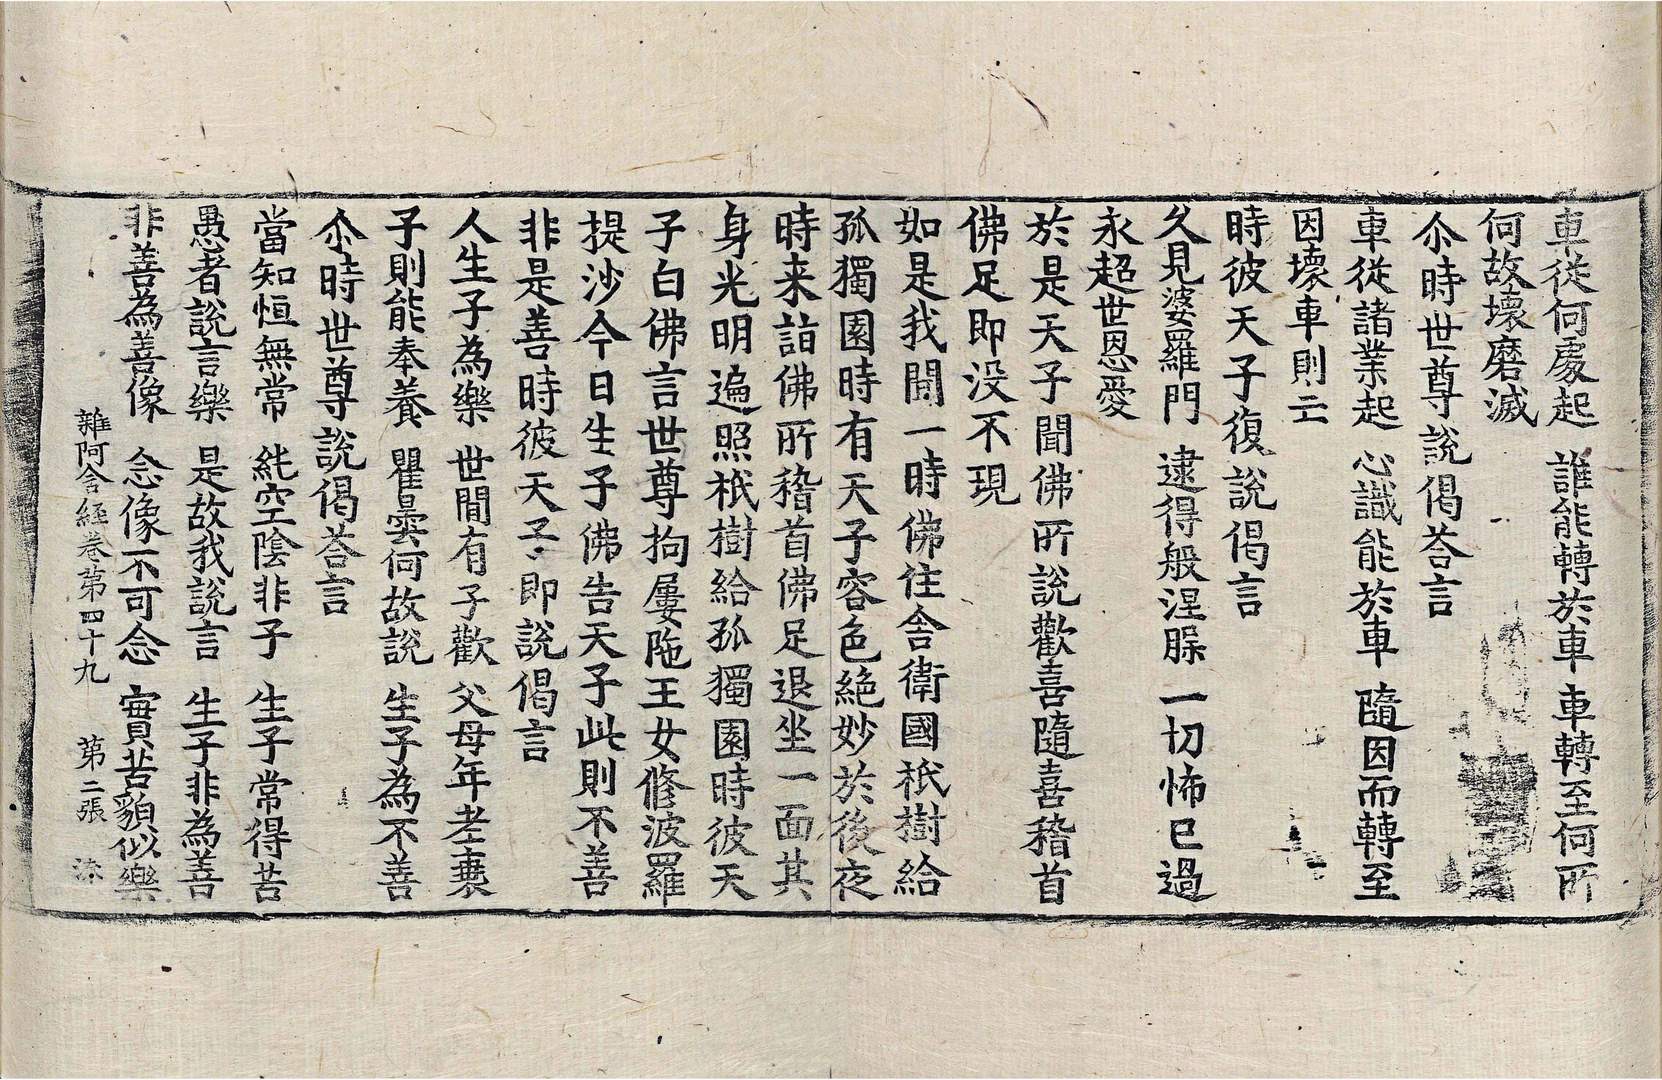 車從何處起　誰能轉於車　車轉至何所
何故壞磨滅
尒時世尊說偈荅言
車從諸業起　心識能於車　隨因而轉至
因壞車則亡
時彼天子復說偈言
久見婆羅門　逮得般涅槃　一切怖已過
永超世恩愛
於是天子聞佛所說歡喜隨喜稽首
佛足即没不現
如是我聞一時佛住舍衛國祇樹給
孤獨園時有天子容色絕妙於後夜
時来詣佛所稽首佛足退坐一面其
身光明遍照祇樹給孤獨園時彼天
子白佛言世尊拘屢陁王女修波羅
提沙今日生子佛告天子此則不善
非是善時彼天子即說偈言
人生子為樂　世間有子歡　父母年老衰
子則能奉養　瞿曇何故說　生子為不善
尒時世尊說偈荅言
當知恒無常　純空陰非子　生子常得苦
愚者說言樂　是故我說言　生子非為善
非善為善像　念像不可念　實苦貌似樂
雜阿含経卷第四十九　第二張　㓒